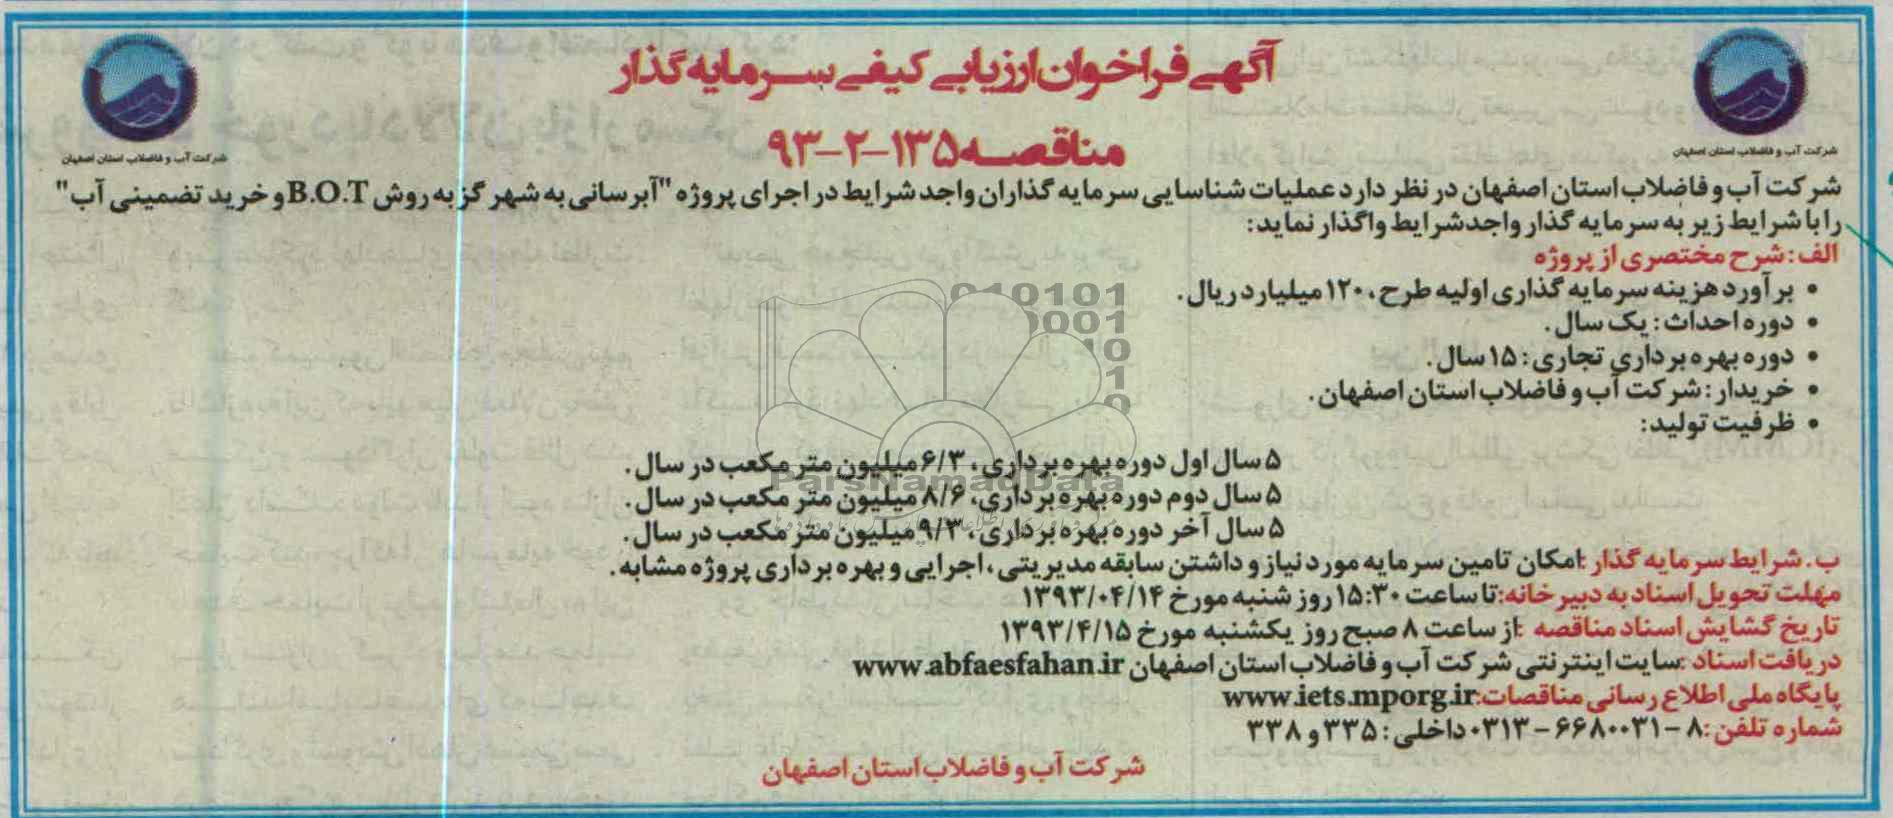 آگهی فراخوان ارزیابی کیفی سرمایه گذار
مناقصه ۱۳۵-۲-۹۳
شرکت آب و فاضلاب استان اصفهان
شرکت آب و فاضلاب استان اصفهان
شرکت آب و فاضلاب استان اصفهان در نظر دارد عملیات شناسایی سرمایه گذاران واجد شرایط در اجرای پروژه "آبرسانی به شهر گز به روش B.O.T و خرید تضمینی آب"
را با شرایط زیر به سرمایه گذار واجد شرایط واگذار نماید:
الف: شرح مختصری از پروژه
• برآورد هزینه سرمایه گذاری اولیه طرح، ۱۲۰ میلیارد ریال.
• دوره احداث: یک سال.
• دوره بهره برداری تجاری: ۱۵ سال.
• خریدار: شرکت آب و فاضلاب استان اصفهان.
• ظرفیت تولید:
۵ سال اول دوره بهره برداری، ۶/۳ میلیون متر مکعب در سال.
۵ سال دوم دوره بهره برداری، ۸/۶ میلیون متر مکعب در سال.
۵ سال آخر دوره بهره برداری، ۹/۳ میلیون متر مکعب در سال.
ب. شرایط سرمایه گذار: امکان تامین سرمایه مورد نیاز و داشتن سابقه مدیریتی، اجرایی و بهره برداری پروژه مشابه.
مهلت تحویل اسناد به دبیرخانه: تا ساعت ۱۵:۳۰ روز شنبه مورخ ۱۳۹۳/۰۴/۱۴
تاریخ گشایش اسناد مناقصه: از ساعت ۸ صبح روز یکشنبه مورخ ۱۳۹۳/۴/۱۵
دریافت اسناد: سایت اینترنتی شرکت آب و فاضلاب استان اصفهان www.abfaesfahan.ir
پایگاه ملی اطلاع رسانی مناقصات: www.iets.mporg.ir
شماره تلفن: ۸-۰۳۱۳-۶۶۸۰۰۳۱ داخلی: ۳۳۵ و ۳۳۸
شرکت آب و فاضلاب استان اصفهان
ParsNamadData